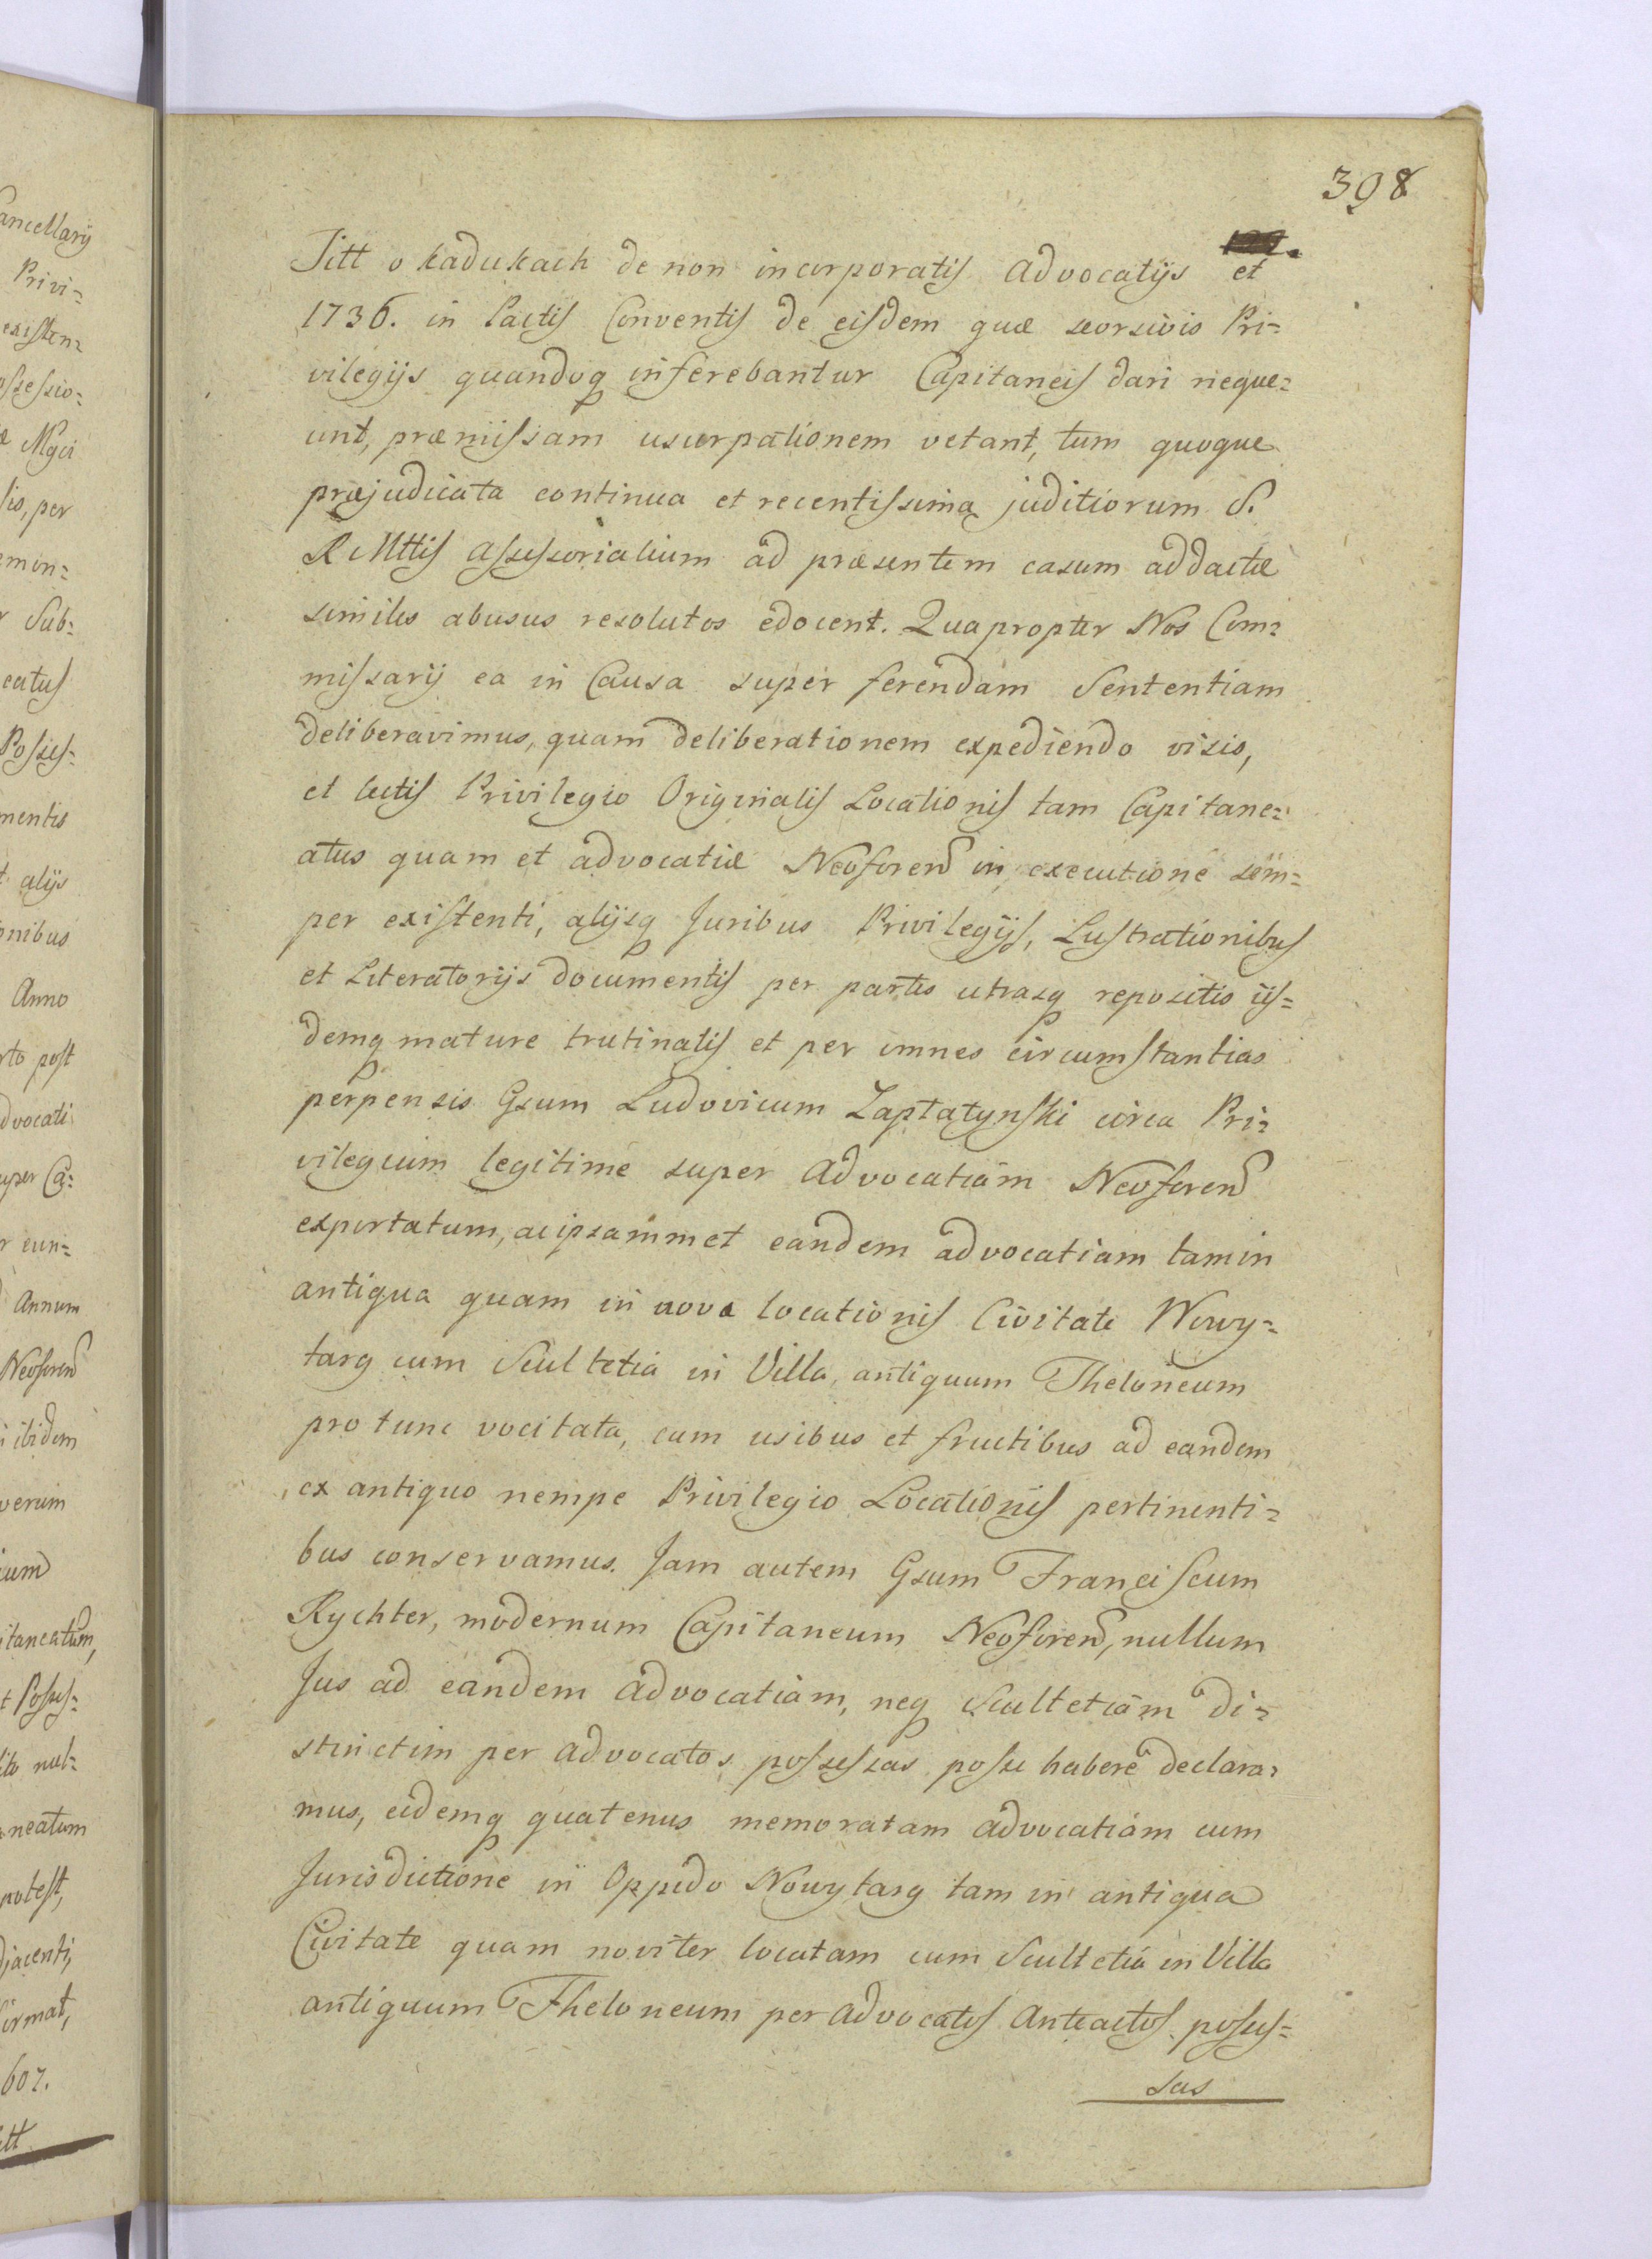 398
Titt o kadukach de non incorporatis Advocatijs et
1736. in Pactis Conventis de eisdem quæ seorsivis Pri=
vilegijs quandoq inferebantur Capitaneis dari neque=
unt, præmissam usurpationem vetant, tum quoque
præjudicata continua et recentissima juditiorum S.
R Mttis Assessorialium ad præsentem casum addactæ
similes abusus resolutos edocent. Quapropter Nos Com=
missarij ea in Causa super ferendam Sententiam
deliberavimus, quam deliberationem expediendo visis,
et lectis Privilegio Originalis Locationis tam Capitane=
atus quam et advocatiæ Neoforen in executione sem=
per existenti, alijsq Juribus Privilegijs, Lustrationibus
et Literatorijs documentis per partes utrasq repositis iis=
demq mature trutinatis et per omnes circumstantias
perpensis Gsum Ludovicum Zaptatynski circa Pri=
vilegium legitime super Advocatiam Neoforen
exportatum, ac ipsammet eandem advocatiam tam in
antiqua quam in nova locationis Civitate Nowy=
targ cum Scultetia in Villa, antiquum Theloneum
pro tunc vocitata, cum usibus et fructibus ad eandem
ex antiquo nempe Privilegio Locationis pertinenti=
bus conservamus. Jam autem Gsum Franciscum
Rychter, modernum Capitaneum Neoforen, nullum
Jus ad eandem Advocatiam, neq Scultetiam di=
stinctim per Advocatos possessas posse habere declara=
mus, eidemq quatenus memoratam Advocatiam cum
Jurisdictione in Oppido Nowytarg tam in antiqua
Civitate quam noviter locatam cum Scultetia in Villa
antiquum Theloneum per Advocatos Anteactos posses=
sas